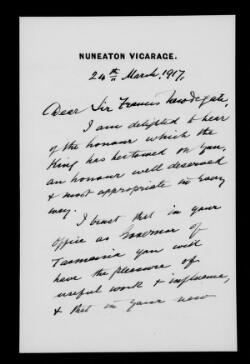 NUNEATON VICARAGE.
24th March, 1917,
Dear Sir Francis Newdegate,
I am delighted to hear
of the honour which the
King has bestowed on you,
an honour well deserved
& most appropriate in every
way.
I trust that in your
office as Governor of
Tasmania you will
have the pleasure of
useful work & influence,
& that in your new